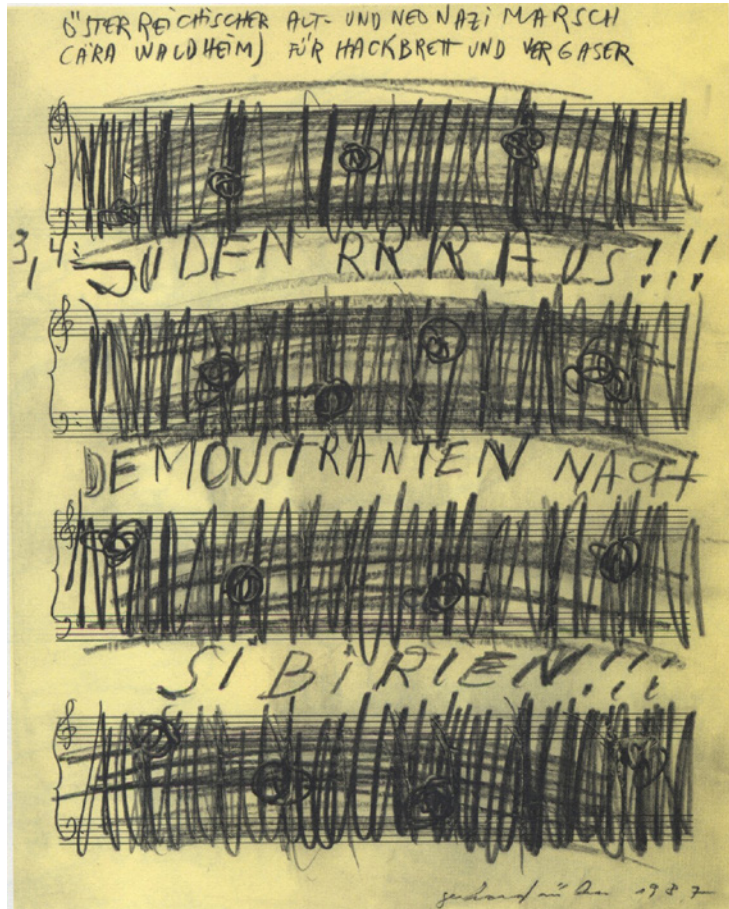 ÖSTERREICHISCHER ALT- UND NEONAZI MARSCH
(ÄRA WALDHEIM) FÜR HACKBRETT UND VERGASER
3, 4: JUDEN RRRRAUS!!!
DEMONSTRANTEN NACH
SIBIRIEN!!!
gerhard rühm 1987